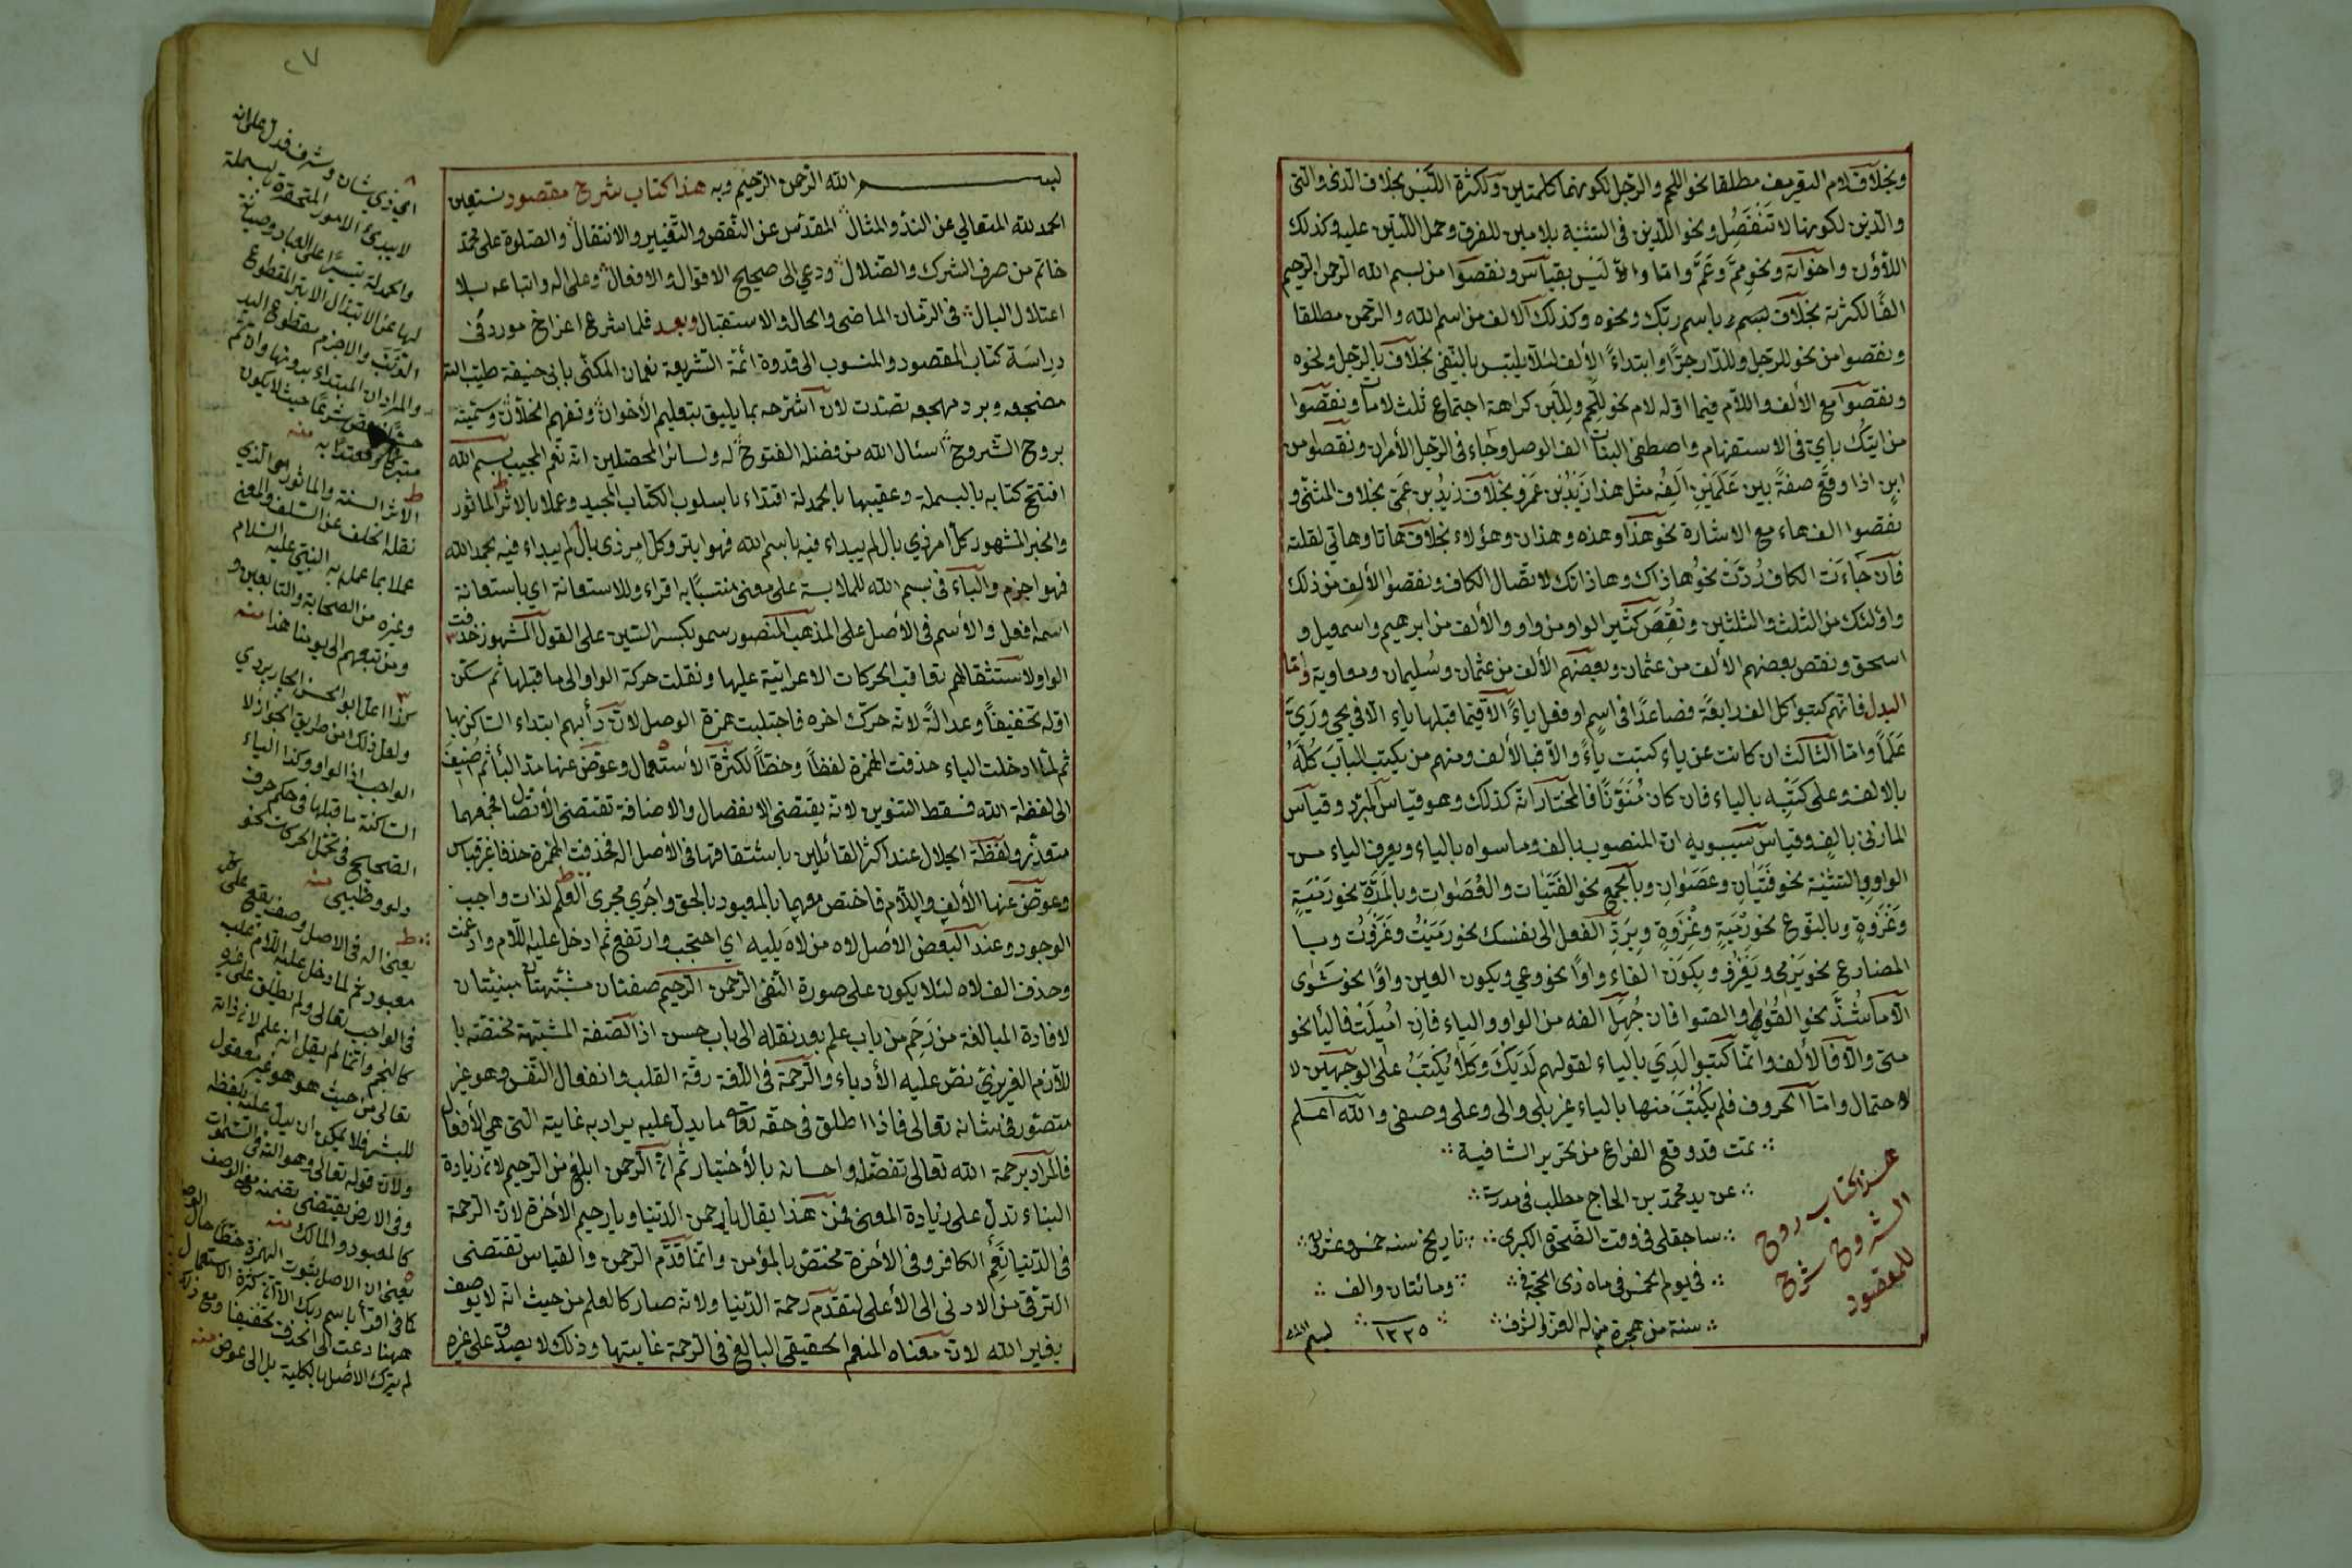 وبخلاف لام التعريف مطلقا نحو اللحم والرجل لكونهما كلمتين ولكثرة اللبس بخلاف الذى والتى
والذين لكونها لا تنفصل ونحو اللذين فى التثنية بلامين للفرق وحمل اللتين عليه وكذلك
اللاؤن واخواته ونحو مم وعم واما والا ليس بقياس ونقصوا من بسم الله الرحمن الرحيم
الفا لكثرته بخلاف باسم ربك ونحوه وكذلك الالف من اسم الله والرحمن مطلقا
ونقصوا من نحو للرجل وللدار جرا وابتداء الألف لئلا يلتبس بالنفى بخلاف بالرجل ونحوه
ونقصوا مع الألف واللام فيما اوله لام نحو للحم وللبن كراهة اجتماع ثلث لامات ونقصوا
من ابنك بار فى الاستفهام واصطفى البنات الف الوصل وجاء فى الرجل الأمران ونقصوا من
ابن اذا وقع صفة بين علمين الفه مثل هذا زيد بن عمرو بخلاف زيد بن عمرو بخلاف المثنى و
نقصوا الف هاء مع الاشارة نحو هذا وهذه وهذان وهؤلاء بخلاف هاتا وهاتي لقلته
فان جاءت الكاف ردت نحو هاذاك وهاذانك لاتصال الكاف ونقصوا الألف من ذلك
واولئك من الثلث والثلثين ونقص كثير الواو من داود والألف من ابرهيم واسمعيل و
اسحق ونقص بعضهم الألف من عثمان وسليمان ومعاوية واما
البدل فانهم كتبوا كل الف رابعة فصاعدا فى اسم او فعل ياء الا فيما قبلها ياء الا في يحي وريى
علما واما الثالث ان كانت عن ياء كتبت ياء والا فبالألف ومنهم من يكتب الباب كله
بالالف وعلى كتبه بالياء فان كان منونا فالمختار انه كذلك وهو قياس المبرد وقياس
المازنى بالف وقياس سيبويه ان المنصوب بالف وما سواه بالياء ويعرف الياء من
الواو بالتثنية نحو فتيان وعصوان وبالجمع نحو الفتيات والقصوات وبالمرة نحو رمية
وغزوة وبالنوع نحو رمية وغزوة وبرد الفعل الى نفسك نحو رميت وغزوت وبا
المضارع نحو يرمى ويغزو وبكون الفاء واوا نحو وعي وبكون العين واوا نحو شوى
الا ما شذ نحو القوا والصوا فان جهل الفه من الواو والياء فان اميلت فاليأ نحو
متى والا فالألف وانما كتبوا لدي بالياء لقولهم لديك وكلا يكتب على الوجهين لا
لاحتمال واما الحروف فلم يكتب منها بالياء غير بلى والى وعلى وحتى والله اعلم
تمت قد وقع الفراغ من تحرير الشافية
عن يد محمد بن الحاج مطلب فى مدرسة
ساجقلى فى وقت الضحوة الكبرى تاريخ سنه خمس وعشرين
فى يوم الخمس فى ماه ذى الحجة ومائتان والف
سنة من هجرة من له العز والشرف ١٢٢٥
بسم الله
هذا كتاب روح
الشروح شرح
للمقصود
٢٧
بسم الله الرحمن الرحيم وبه هذا كتاب شرح مقصود نستعين
الحمد لله المتعالي عن الند والمثال المقدس عن النقص والتغيير والانتقال والصلوة على محمد
خاتم من صرف الشرك والضلال ودعي الى صحيح الاقوال والافعال وعلى اله واتباعه بلا
اعتلال البال فى الزمان الماضى والحال والاستقبال وبعد فلما شرع اعز اخ مورد فى
دراسة كتاب المقصود والمنسوب الى قدوة ائمة الشريعة نعمان المكنى بابى حنيفة طيب الله
مضجعه وبرد مهجعه تصديت لان اشرحه بما يليق بتعليم الاخوان وتفهيم الخلان وسميته
بروح الشروح اسئال الله من فضله الفتوح له ولسائر المحصلين انه نعم المجيب بسم الله
افتتح كتابه بالبسملة وعقبها بالحمدلة اقتداء باسلوب الكتاب المجيد وعملا بالاثر المأثور
والخبر المشهور كل امر ذي بال لم يبداء فيه باسم الله فهو ابتر وكل امر ذى بال لم يبداء فيه بحمد الله
فهو اجزم والباء فى بسم الله للملابسة على معنى متلبسا به اقراء وللاستعانة اي باستعانة
اسمه افعل والاسم فى الأصل على المذهب المنصور سمو بكسر السين على القول المشهور حذفت
الواو لاستثقالهم تعاقب الحركات الاعرابية عليها ونقلت حركة الواو الى ما قبلها ثم سكن
اوله تخفيفا وعدالة لانه حرك اخره فاجتلبت همزة الوصل لان دأبهم ابتداء الساكن بها
ثم لما ادخلت الباء حذفت الهمزة لفظا وخطا لكثرة الاستعمال وعوض عنها مد البأ ثم اضيف
الى لفظة الله فسقط التنوين لانه يقتضى الانفصال والاضافة تقتضى الاتصال فجمعهما
متعذر ولفظة الجلال عند اكثر القائلين باشتقاقها فى الأصل اله فحذفت الهمزة حذفا غير قياس
وعوض عنها الألف واللام فاختص معهما بالمعبود بالحق واجرى مجرى العلم لذات واجب
الوجود وعند البعض الاصل لاه من لاه يليه اي احتجب وارتفع ثم ادخل عليه اللام وادغمت
وحذف الف لاه لئلا يكون على صورة النفى الرحمن الرحيم صفتان مشبهتان مبنيتان
لافادة المبالغة من رحم من باب علم بعد نقله الى باب حسن اذ الصفة المشبهة مختصة با
للازم الغريزي نص عليه الأدباء والرحمة فى اللغة رقة القلب وانفعال النفس وهو غير
متصور فى شانه تعالى فاذا اطلق فى حقه تعا ما يدل عليه يراد به غايته التى هى الأفعال
فالمراد برحمة الله تعالى تفضله واحسانه بالأختيار ثم ان الرحمن ابلغ من الرحيم لان زيادة
البناء تدل على زيادة المعنى فمن هذا يقال يا رحمن الدنيا ويا رحيم الأخرة لان الرحمة
فى الدنيا تعم الكافر وفى الأخرة مختص بالمؤمن وانما قدم الرحمن والقياس تقتضى
الترقى من الادنى الى الأعلى لتقدم رحمة الدنيا ولانه صار كالعلم من حيث انه لا يوصف
بغير الله لان معناه المنعم الحقيقى البالغ فى الرحمة غايتها وذلك لا يصدق على غيره
اي ذي شان وشرف فدل على انه
لا يبدئ الامور المتحقرة بالبسملة
والحمدلة تيسيرا على العباد وصيانة
لها عن الابتذال الابتر المقطوع
الذنب والاجزم مقطوع اليد
والمراد ان المبتداء بدونها وان تم
الاثر السنة والمأثور اى الذي
نقله الخلف عن السلف والمعنى
عملا بما عمل به النبى عليه السلام
وغيره من الصحابة والتابعين و
ومن تبعهم الى يومنا هذا منه
كذا اعل ابو الحسن الجاربردي
ولعل ذلك من طريق الجواز لا
الواجب اذ الواو وكذا الياء
الساكنة ما قبلها فى حكم حرف
الصحيح فى تحمل الحركات نحو
دلو وظبى منه
يعنى اله فى الاصل وصف يقع على كل
معبود ثم لما دخل عليه اللام غلب
كالنجم وانما لم يقل انه علم لان ذاته
تعالى من حيث هو هو غير معقول
للبشر فلا يمكن ان يدل عليه بلفظه
ولان قوله تعالى وهو الله فى السموات
وفى الارض يقتضى تضمنه معنى الوصف
كالمعبود والمالك منه
يعنى ان الاصل ثبوت الهمزة خطا
كما فى اقرأ باسم ربك الا ان كثرة الاستعمال
ههنا دعت الى الحذف تخفيفا ومع ذلك
لم يترك الأصل بالكلية بل الى عوض منه